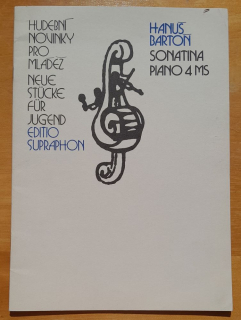 HUDEBNÍ
NOVINKY
PRO
MLÁDEŽ
NEUE
STÜCKE
FÜR
JUGEND
EDITIO
SUPRAPHON
HANUŠ
BARTOŇ
SONATINA
PIANO 4 MS